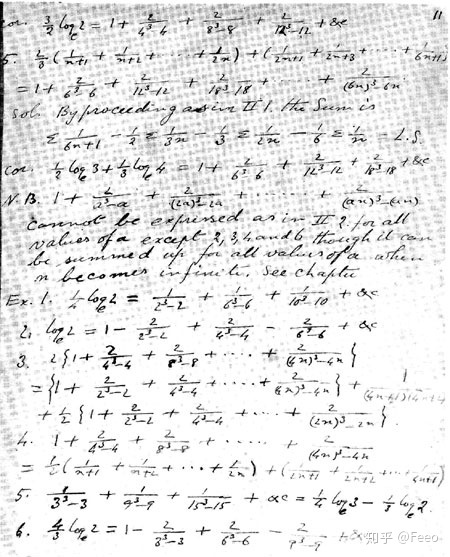 11
cor. 3/2 log_e 2 = 1 + 2/(4³-4) + 2/(8³-8) + 2/(12³-12) + &c
5. 2/3 (1/(n+1) + 1/(n+2) + ····· + 1/2n) + (1/(2n+1) + 1/(2n+3) + ····· 1/(6n+1))
= 1 + 2/(6³-6) + 2/(12³-12) + 2/(18³-18) + ····· + 2/((6n)³-6n)
Sol. By proceeding as in II 1. the Sum is
Σ 1/(6n+1) - 1/2 Σ 1/3n - 1/3 Σ 1/2n - 1/6 Σ 1/n = L.S.
cor. 1/2 log_e 3 + 1/3 log_e 4 = 1 + 2/(6³-6) + 2/(12³-12) + 2/(18³-18) + &c
N.B. 1 + 2/(a³-a) + 2/((2a)³-2a) + ······ + 2/((an)³-an)
cannot be expressed as in II 2. for all
values of a except 2, 3, 4 and 6 though it can
be summed up for all values of a when
n becomes infinite. See chapter
Ex. 1. 1/4 log_e 2 = 1/(2³-2) + 1/(6³-6) + 1/(10³-10) + &c
2. log_e 2 = 1 - 2/(2³-2) + 2/(4³-4) - 2/(6³-6) + &c
3. 2{1 + 2/(4³-4) + 2/(8³-8) + ····· + 2/((4n)³-4n)}
= {1 + 2/(2³-2) + 2/(4³-4) + ····· + 2/((4n)³-4n)} + 1/((4n+1)
+ 1/2 {1 + 2/(2³-2) + 2/(4³-4) + ····· + 2/((2n)³-2n)}.
4. 1 + 2/(4³-4) + 2/(8³-8) + ····· + 2/((4n)³-4n)
= 1/2 (1/(n+1) + 1/(n+2) + ··· + 1/2n) + (1/(2n+1) + 1/(2n+2) + ··· + 1/(4n+1))
5. 1/(3³-3) + 1/(9³-9) + 1/(15³-15) + &c = 1/4 log_e 3 - 1/3 log_e 2.
6. 4/3 log_e 2 = 1 - 2/(3³-3) + 2/(6³-6) - 2/(9³-9) + &c
知乎 @Feeo